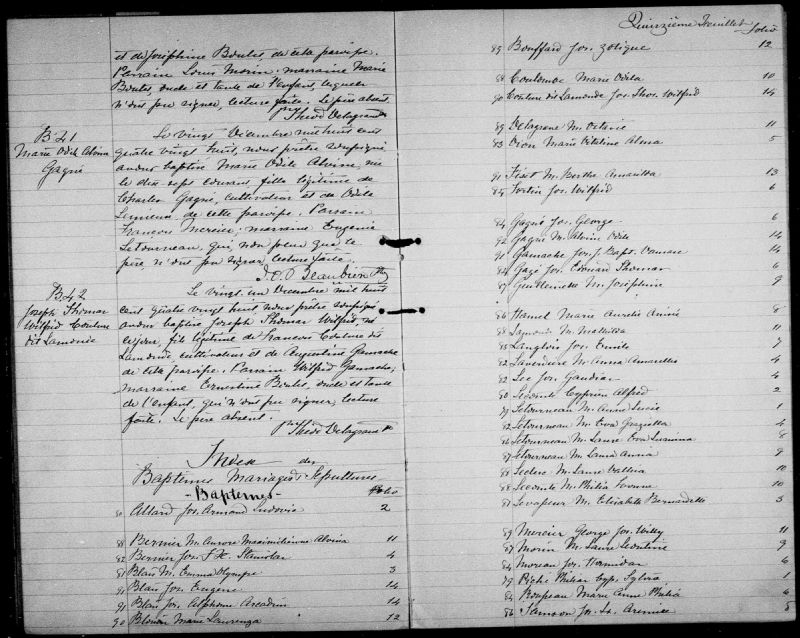 et de Joséphine Boulet de cette paroisse.
Parrain Louis Morin, marraine Marie
Boulet, oncle et tante de l'enfant, lesquels
n'ont pu signer, lecture faite. Le père absent.
Ptre Théod Delagrave
B 41
Marie Odile Alvina
Gagné
Le vingt Décembre mil huit cent
quatre vingt huit, nous prêtre soussigné
avons baptisé Marie Odile Alvine, née
le dix-sept courant, fille légitime de
Charles Gagné, cultivateur et de Odile
Lemieux de cette paroisse. Parrain
François Mercier, marraine Eugénie
Letourneau, qui, non plus que le
père, n'ont pu signer, lecture faite.
J. O. Beaubien Ptre
B 42
Joseph Thomas
Wilfrid Couture
dit Lamonde
Le vingt-un Décembre mil huit
cent quatre vingt huit, nous prêtre soussigné
avons baptisé Joseph Thomas Wilfrid, né
ce jour, fils légitime de François Couture dit
Lamonde, cultivateur et de Augustine Gamache
de cette paroisse. Parrain Wilfrid Gamache,
marraine Ernestine Boulet, oncle et tante
de l'enfant, qui n'ont pu signer, lecture
faite. Le père absent.
Ptre Théod Delagrave
Index des
Baptêmes Mariages & Sépultures
- Baptêmes - Folio
80 Allard Jos. Armand Ludovic 2
88 Bernier M. Aurore Maximilienne Alvina 11
82 Bernier Jos. F. X. Stanislas 4
81 Blais M. Emma Olympe 3
91 Blais Jos. Eugène 14
91 Blais Jos. Alphonse Arcadius 14
90 Blouin Marie Laurenza 12
Quinzième Feuillet
folio
89 Bouffard Jos. Zotique 12
88 Coulombe Marie Odila 10
90 Couture dit Lamonde Jos. Thos. Wilfrid 14
89 Delagrave M. Octavie 11
83 Dion Marie Vitaline Alma 5
91 Fiset M. Berthe Amarilda 13
85 Fortin Jos. Wilfrid 6
84 Gagné Jos. George 6
92 Gagné M. Alvine Odile 14
91 Gamache Jos. J. Bapt. Damase 14
84 Gagé Jos. Edouard Thomas 6
87 Guillemette M. Joséphine 9
86 Hamel Marie Aurélie Aimée 8
88 Lamonde M. Mathilda 11
85 Langlois Jos. Emile 7
82 Laverdière M. Anna Amarilda 4
82 Lec Jos. Gaudias 4
80 Lecomte Cyprien Alfred 2
79 Letourneau M. Anna Lucie 1
82 Letourneau M. Eva Graziella 4
86 Letourneau M. Laure Eva Lumina 8
87 Letourneau M. Lauria Anna 9
88 Leclerc M. Laure Valéria 10
88 Lecomte M. Philia 10
81 Levasseur M. Elisabeth Bernadette 3
89 Mercier George Jos. Willy 11
87 Morin M. Laure Léontine 9
84 Moreau Jos. Hormidas 6
79 Piché Philias Cyp. Sylvio 1
84 Pouseau Marie Anne Philia 6
86 Samson Jos. Ls. Arsenius 8